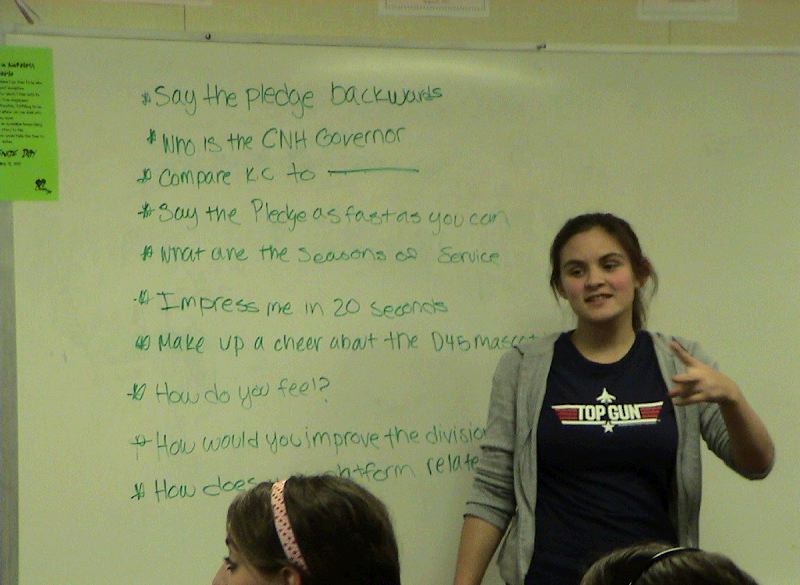 * Say the pledge backwards
* Who is the CNH Governor
* Compare KC to ————
* Say the Pledge as fast as you can
* What are the seasons of Service
* Impress me in 20 seconds
* Make up a cheer about the D45 mascot
* How do you feel?
* How would you improve the division
* How does platform relate
TOP GUN